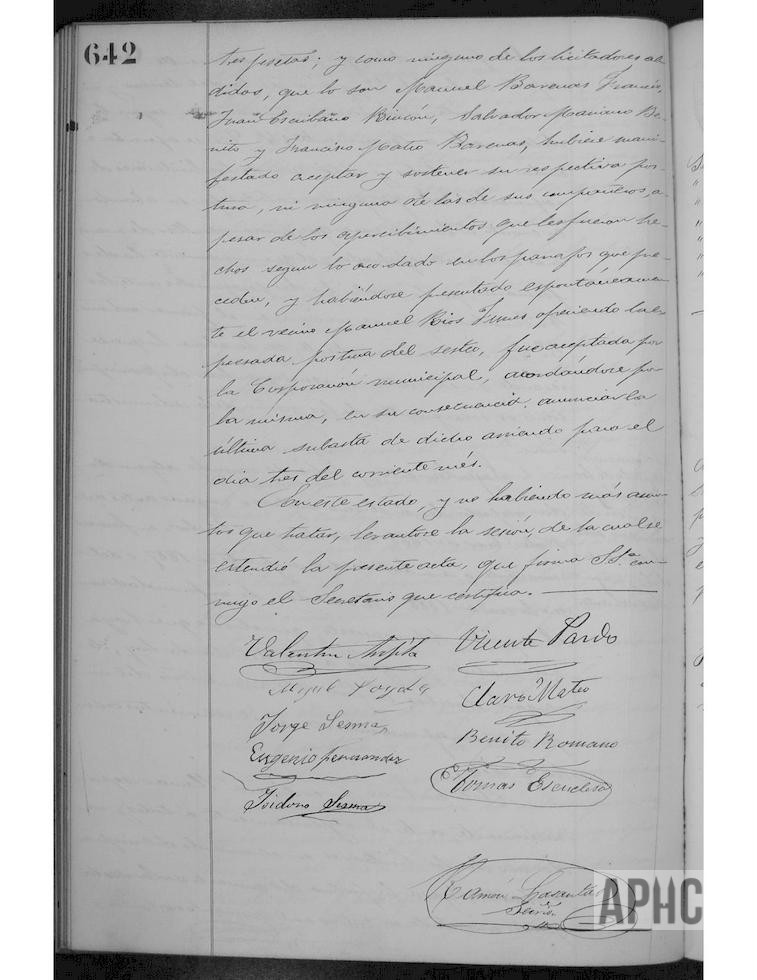 642
tres pesetas; y como ninguno de los licitadores alu-
didos, que lo son Manuel Barenas Francés,
Juan Escribano Rincón, Salvador Mariano Be-
nito y Francisco Mateo Barenas, hubiese mani-
festado aceptar y sostener su respectiva pos-
tura, ni ninguna de las de sus compañeros, a
pesar de los apercibimientos que les fueron he-
chos segun lo acordado en los parrafos que pre-
ceden, y habiéndose presentado espontáneamen-
te el vecino Manuel Rios Funes ofreciendo la ex-
presada postura del sesteo, fue aceptada por
la Corporación municipal, acordándose por
la misma, en su consecuencia, anunciar la
última subasta de dicho arriendo para el
dia tres del corriente més.
En este estado, y no habiendo más asun-
tos que tratar, levantose la sesión, de la cual se
estendió la presente acta, que firma S.Sª con-
migo el Secretario que certifica.
Valentin Vicente Pardo
Claro Mateo
Jorge Lesma
Benito Romano
Eugenio Fernandez
Tomas
Isidoro Lesma
Ramón
Secrio
APHC